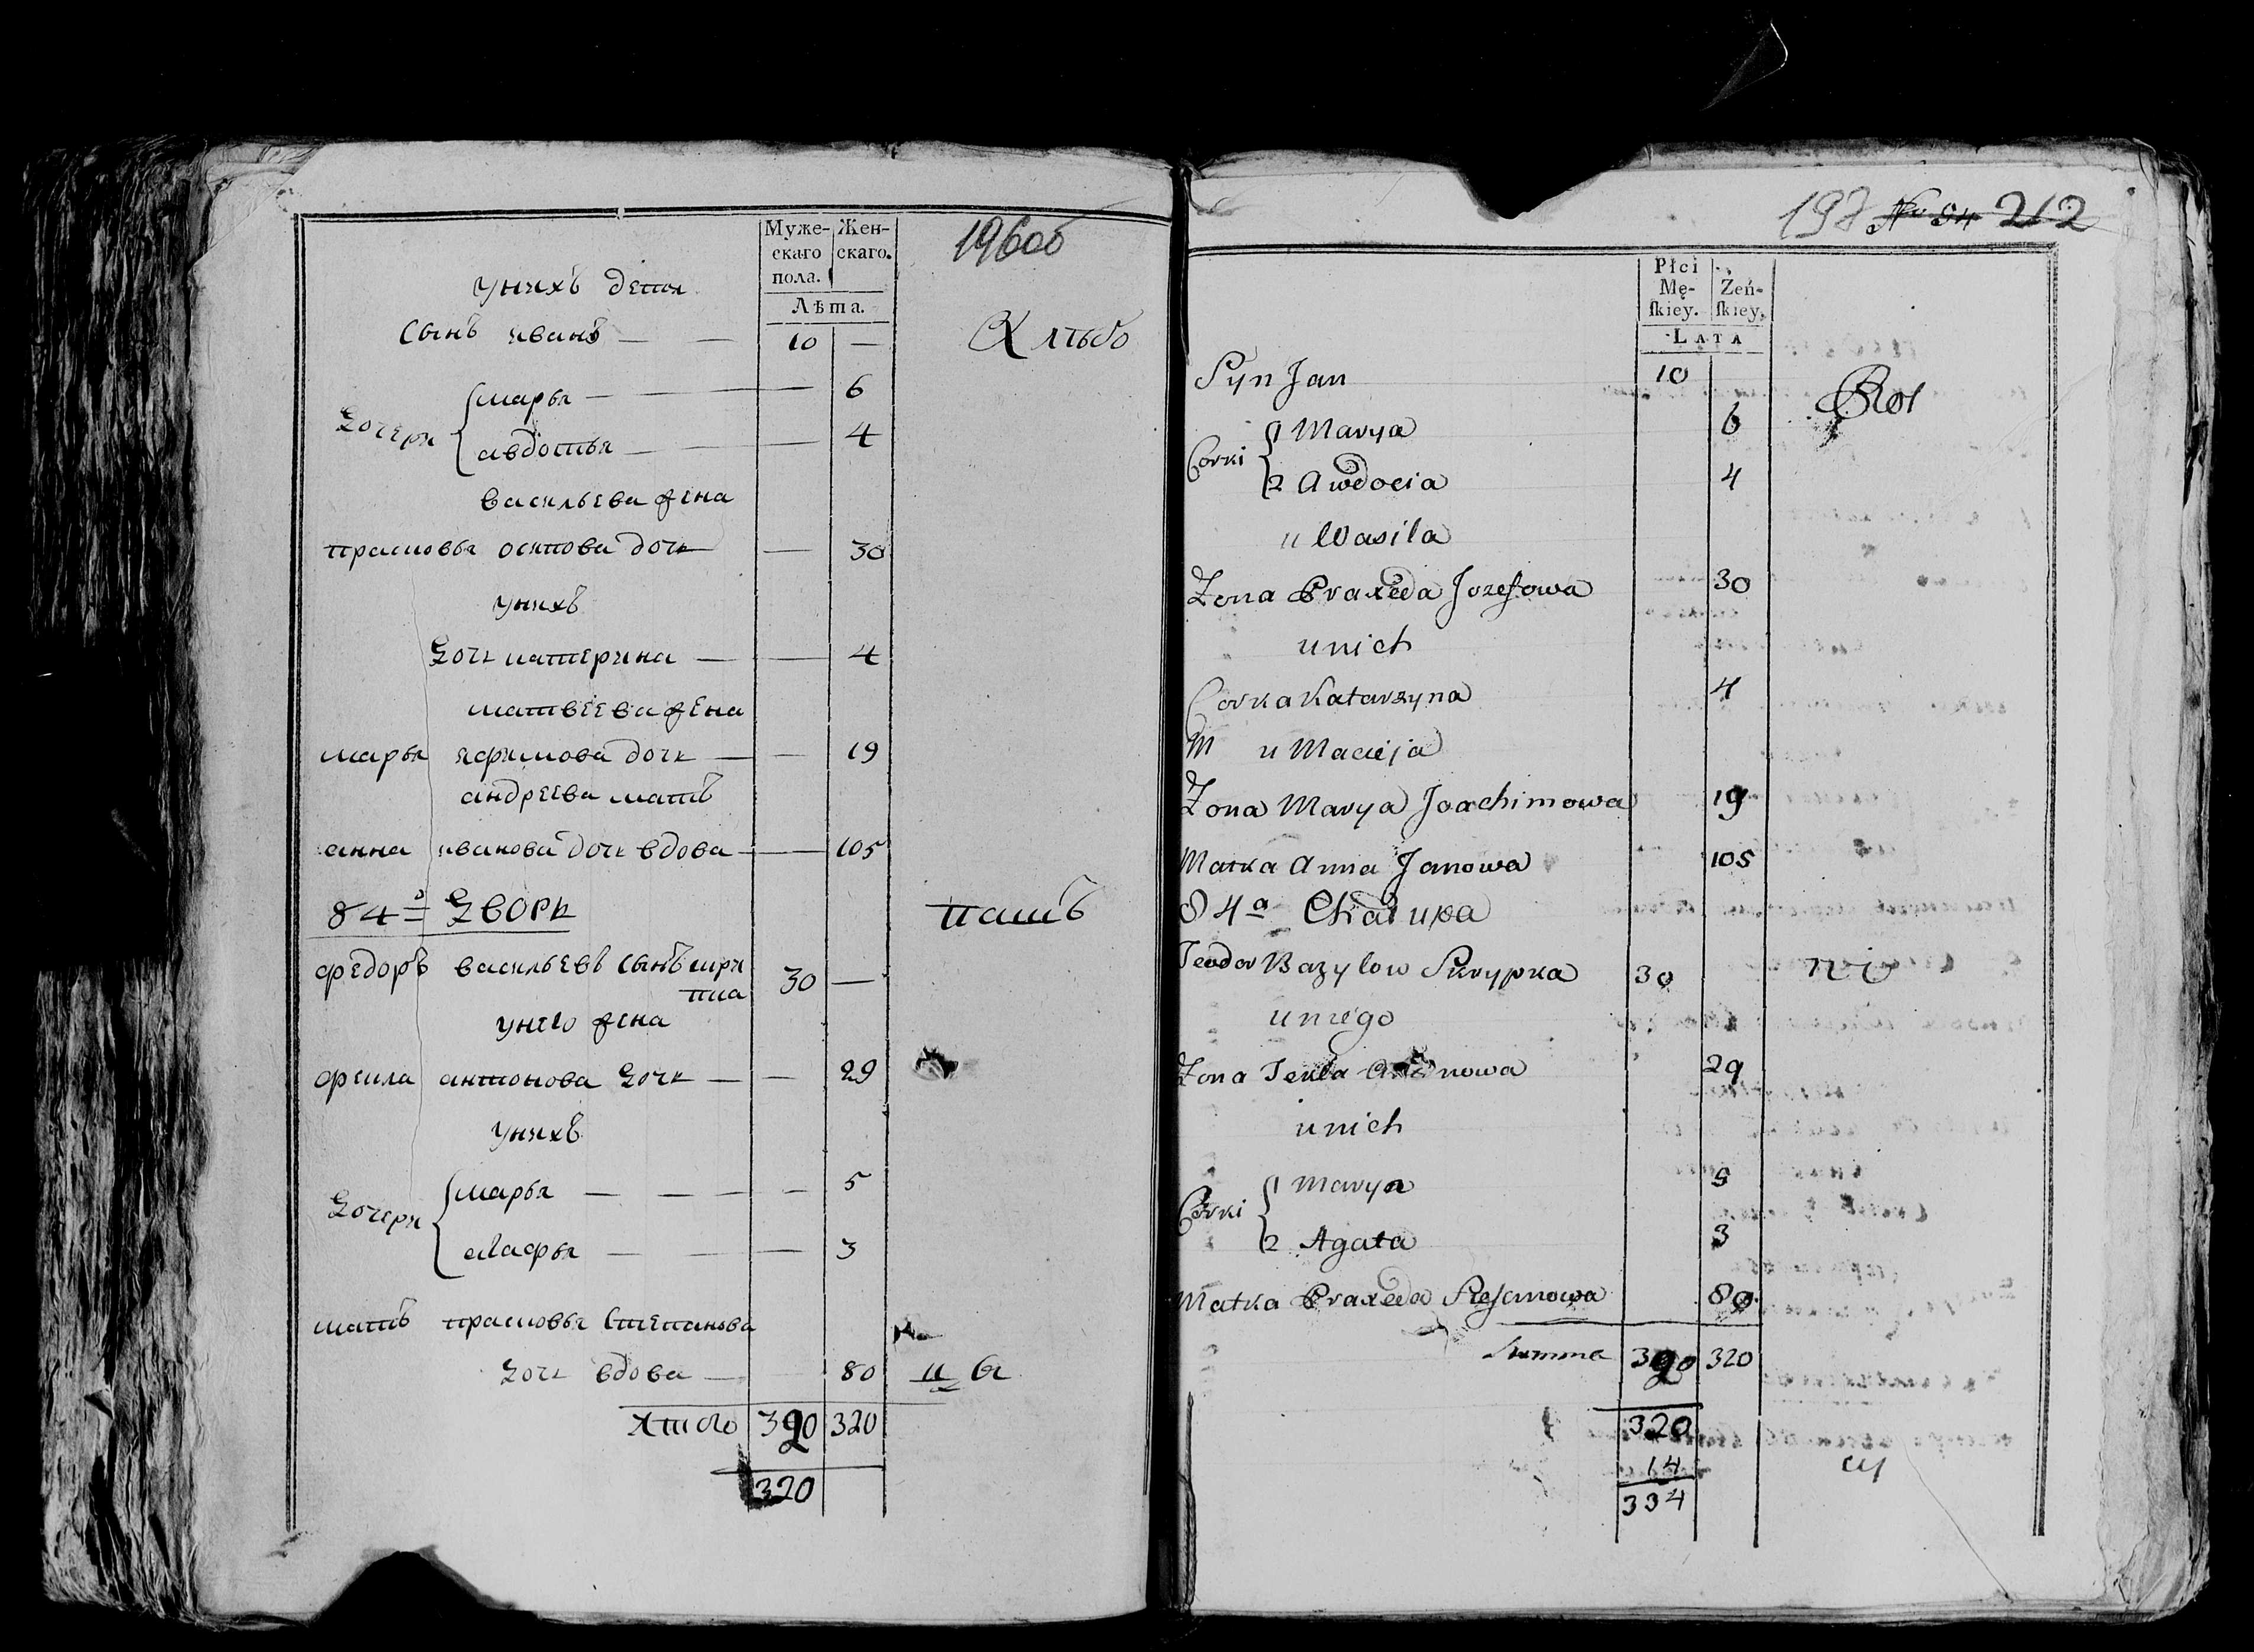 Муже-
скаго
пола.
Жен-
скаго.
Лѣта.
196об
унихъ дети
Сынъ иванъ — — 10 —
Дочери
марья — — 6
авдотья — — 4
васильева жена
прасковья осипова дочь — 30
унихъ
Дочь катерина — — 4
матвеева жена
марья ефимова дочь — — 19
андреева мать
анна иванова дочь вдова — — 105
84й Дворъ
федоръ васильевъ сынъ скри
пка 30 —
унего жена
фекла антонова дочь — — 29
унихъ
Дочери
марья — — — — 5
агафья — — — 3
мать прасковья степанова
дочь вдова — 80
итого 390 320
320
197 212
Płci
Mę-
ſkiey.
Żeń-
ſkiey.
LATA
Syn Jan 10
Corki
1 Marya 6
2 Awdocia 4
u Wasila
Zona Praxeda Jozefowa 30
unich
Corka Katarzyna 4
M u Macieja
Zona Marya Joachimowa 19
Matka Anna Janowa 105
84a Chałupa
Teodor Bazylow Skrypka 30
uniego
Zona Tekla 29
unich
Corki
1 Marya 5
2 Agata 3
Matka Praxeda 80
Summa 390 320
320
14
334